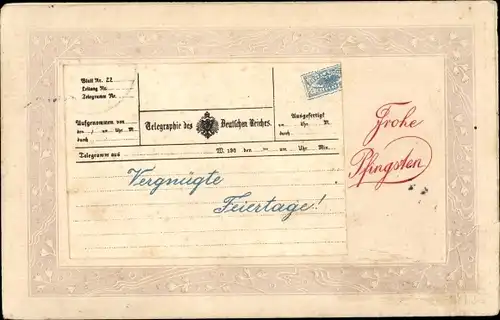 Blatt Nr. 22
Leitung Nr.
Telegramm Nr.
Aufgenommen von
den / um Uhr M.
durch
Telegraphie des Deutschen Reiches.
Ausgefertigt
um Uhr M.
durch
Telegramm aus W. den um Uhr Min.
Vergnügte
Feiertage!
Frohe
Pfingsten